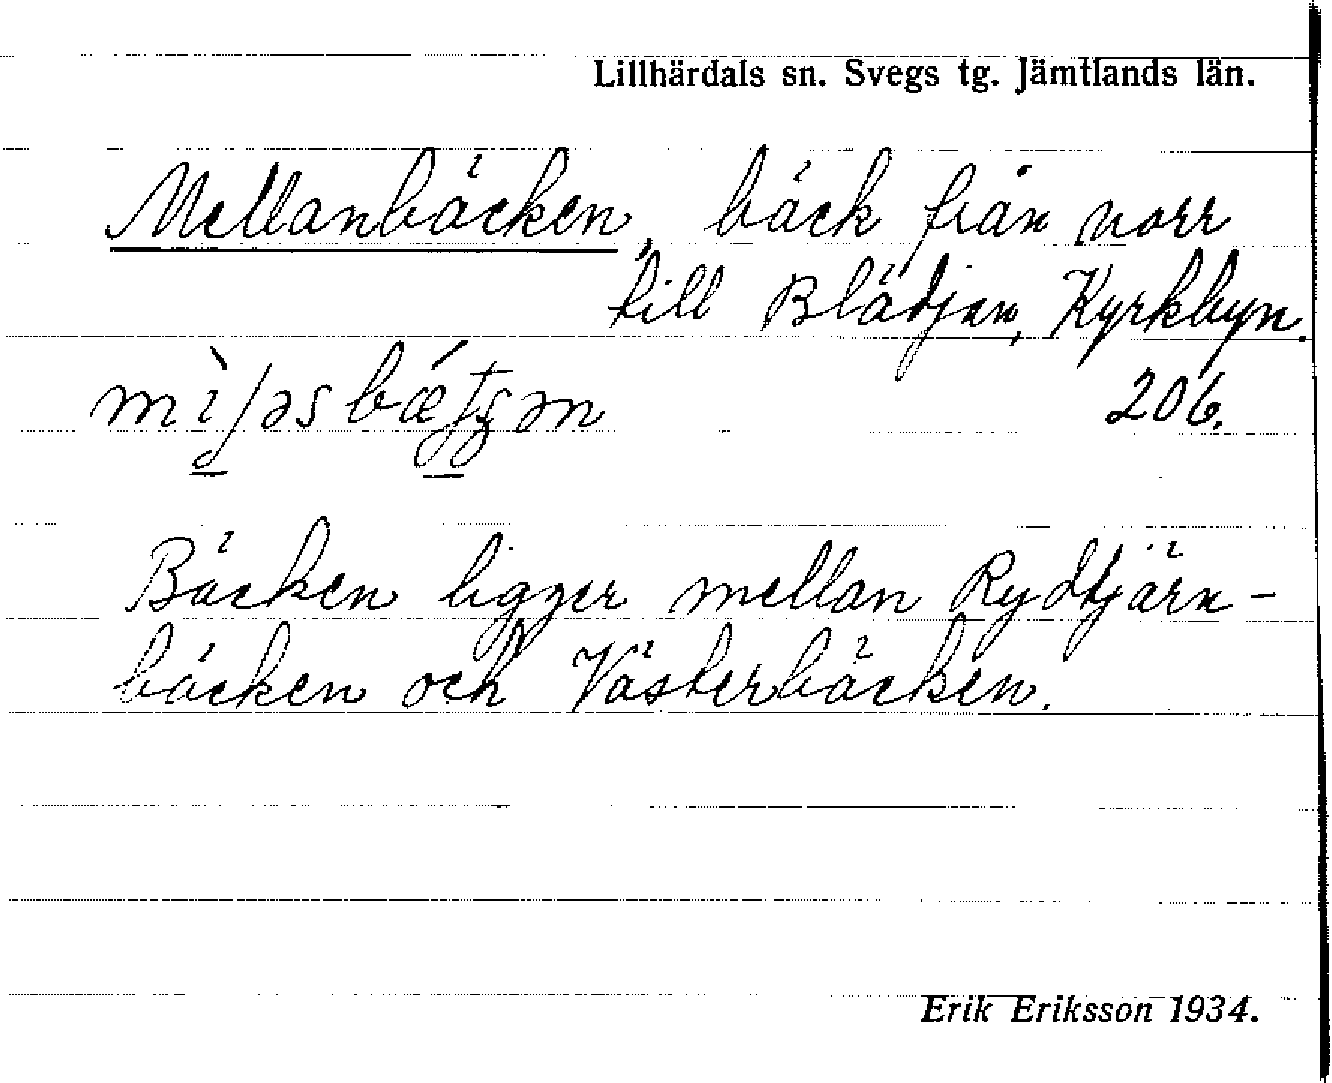 Lillhärdals sn. Svegs tg. Jämtlands län.
Mellanbäcken, bäck från norr
till Blädjan, Kyrkbyn.
206.
Bäcken ligger mellan Rydtjärn-
bäcken och Västerbäcken.
Erik Eriksson 1934.